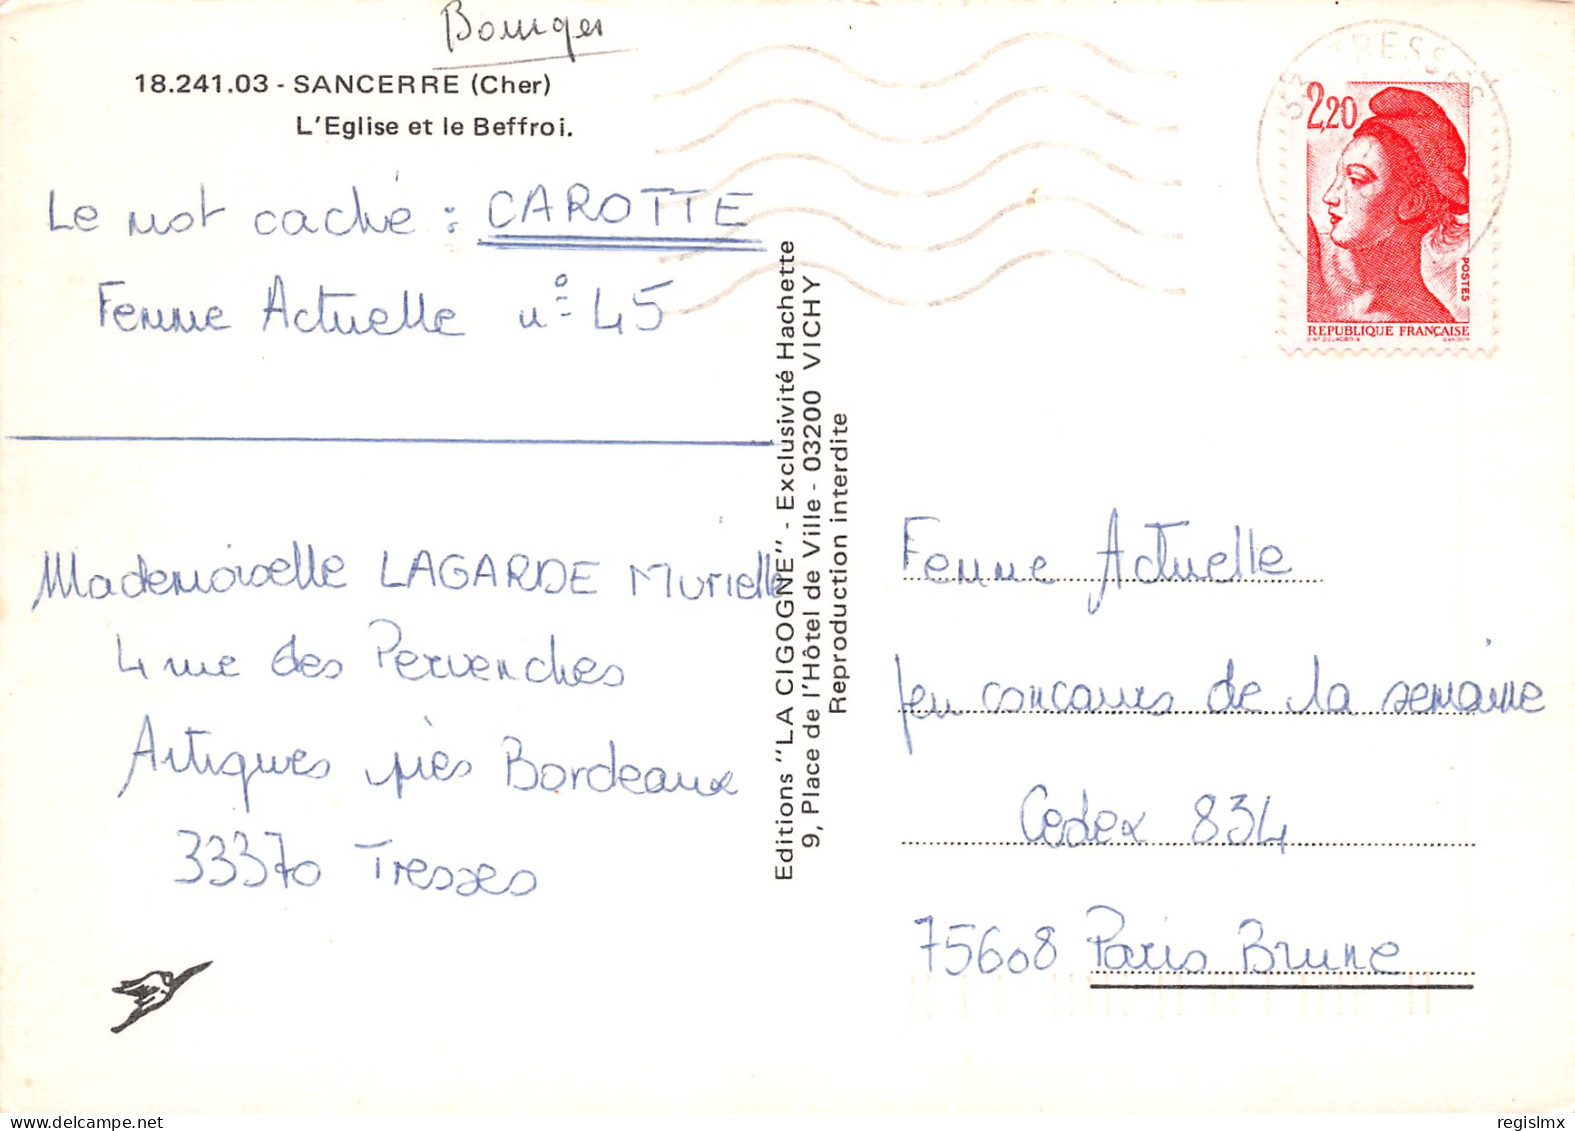 Bourges
18.241.03 - SANCERRE (Cher)
L'Eglise et le Beffroi.
Le mot caché : CAROTTE
Femme Actuelle n° 45
Mademoiselle LAGARDE Murielle
4 rue des Pervenches
Artigues près Bordeaux
33370 Tresses
Editions "LA CIGOGNE" - Exclusivité Hachette
9, Place de l'Hôtel de Ville - 03200 VICHY
Reproduction interdite
33 TRESSES
2,20
POSTES
REPUBLIQUE FRANÇAISE
D'AP. DELACROIX GANDON
Femme Actuelle
Jeu concours de la semaine
Cedex 834
75608 Paris Brune
delcampe.net
regislmx